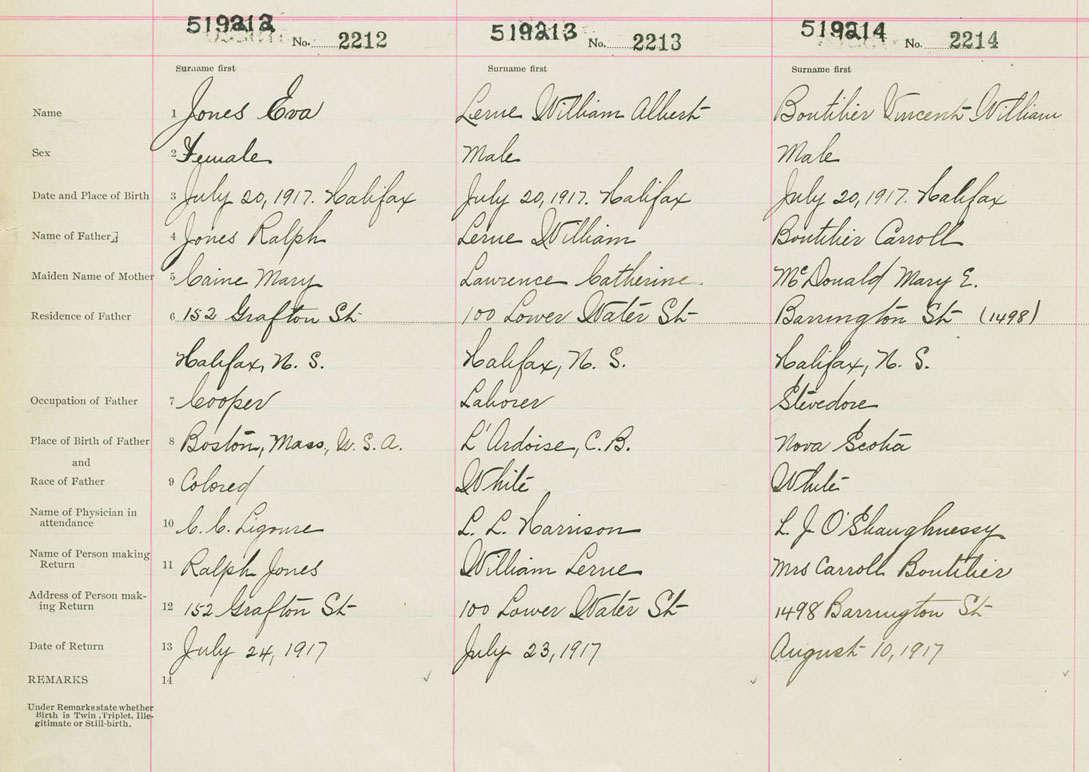 519212 No. 2212 519213 No. 2213 519214 No. 2214
Surname first Surname first Surname first
Name 1 Jones Eva Lerue William Albert Boutilier Vincent William
Sex 2 Female Male Male
Date and Place of Birth 3 July 20, 1917. Halifax July 20, 1917. Halifax July 20, 1917. Halifax
Name of Father 4 Jones Ralph Lerue William Boutilier Carroll
Maiden Name of Mother 5 Caine Mary Lawrence Catherine. McDonald Mary E.
Residence of Father 6 152 Grafton St 100 Lower Water St Barrington St (1498)
Halifax, N. S. Halifax, N. S. Halifax, N. S.
Occupation of Father 7 Cooper Laborer Stevedore
Place of Birth of Father 8 Boston, Mass, U.S.A. L'Ardoise, C.B. Nova Scotia
and
Race of Father 9 Colored White White
Name of Physician in
attendance 10 C. C. Ligoure L. L. Harrison L J O'Shaughnessy
Name of Person making
Return 11 Ralph Jones William Lerue Mrs Carroll Boutilier
Address of Person mak-
ing Return 12 152 Grafton St 100 Lower Water St 1498 Barrington St
Date of Return 13 July 24, 1917 July 23, 1917 August 10, 1917
REMARKS 14
Under Remarks state whether
Birth is Twin, Triplet, Ille-
gitimate or Still-birth.